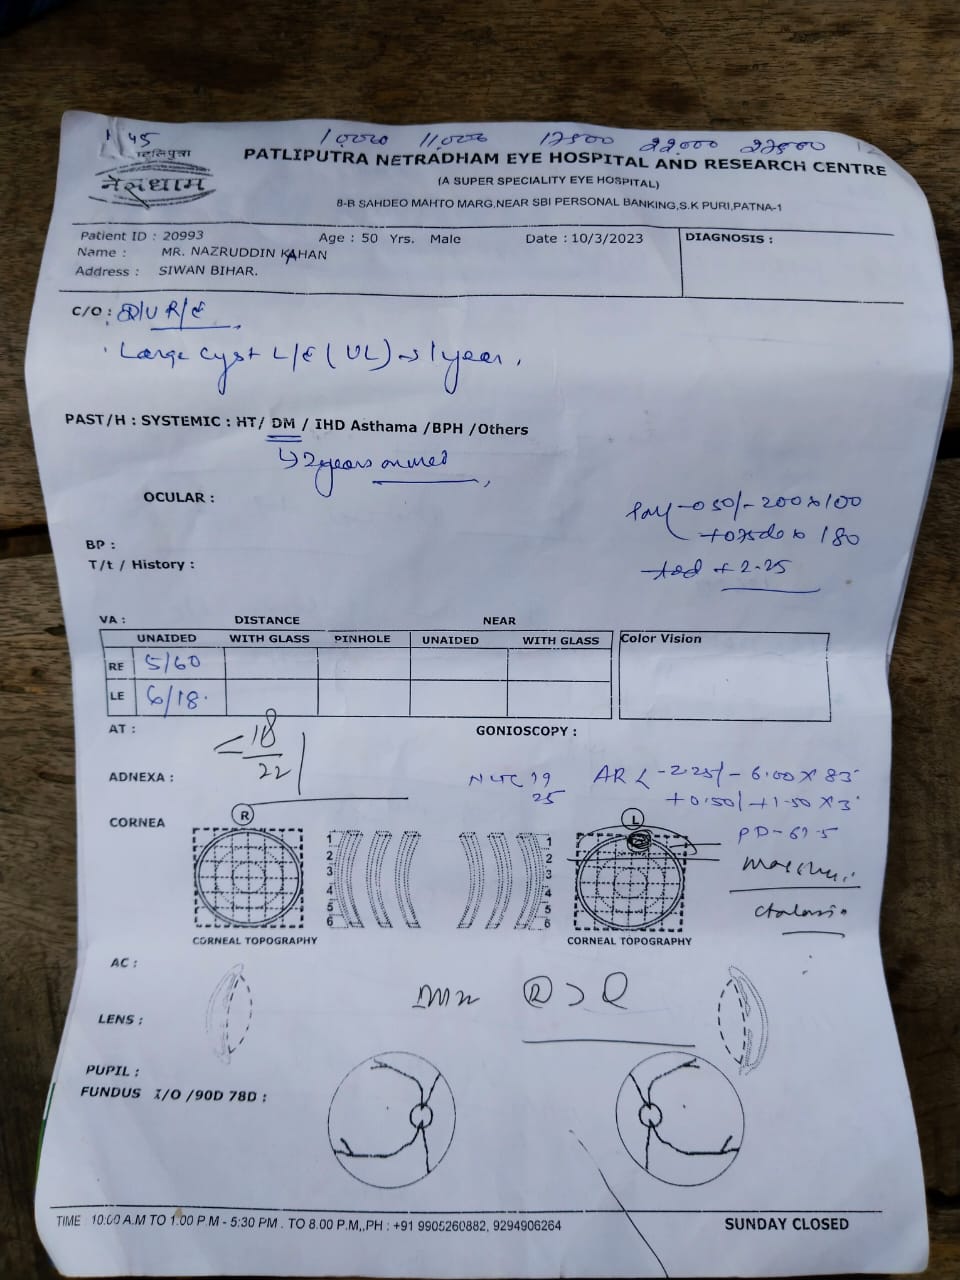 45 10,000 11,000 17500 22,000 27500
पाटलिपुत्रा
नेत्रधाम
PATLIPUTRA NETRADHAM EYE HOSPITAL AND RESEARCH CENTRE
(A SUPER SPECIALITY EYE HOSPITAL)
8-B SAHDEO MAHTO MARG,NEAR SBI PERSONAL BANKING,S.K PURI,PATNA-1
Patient ID : 20993 Age : 50 Yrs. Male Date : 10/3/2023 DIAGNOSIS :
Name : MR. NAZRUDDIN KAHAN
Address : SIWAN BIHAR.
C/O : R/E
Large cyst L/E (UL) → 1 year.
PAST/H : SYSTEMIC : HT/ DM / IHD Asthama /BPH /Others
↳ 2 years on med
OCULAR :
-050/-200x100
x 180
BP :
T/t / History :
Add + 2.25
VA : DISTANCE NEAR
UNAIDED WITH GLASS PINHOLE UNAIDED WITH GLASS Color Vision
RE 5/60
LE 6/18
AT : < 18/22 GONIOSCOPY :
ADNEXA : NCT 19 25 AR < -2.25/-6.00 X 83
+0.50/+1.50 X 3
CORNEA R L PD-
1 2 3 4 5 6 1 2 3 4 5 6
CORNEAL TOPOGRAPHY CORNEAL TOPOGRAPHY
AC :
R > L
LENS :
PUPIL :
FUNDUS I/O /90D 78D :
TIME : 10:00 A.M TO 1.00 P.M - 5:30 PM . TO 8.00 P.M,,PH : +91 9905260882, 9294906264 SUNDAY CLOSED